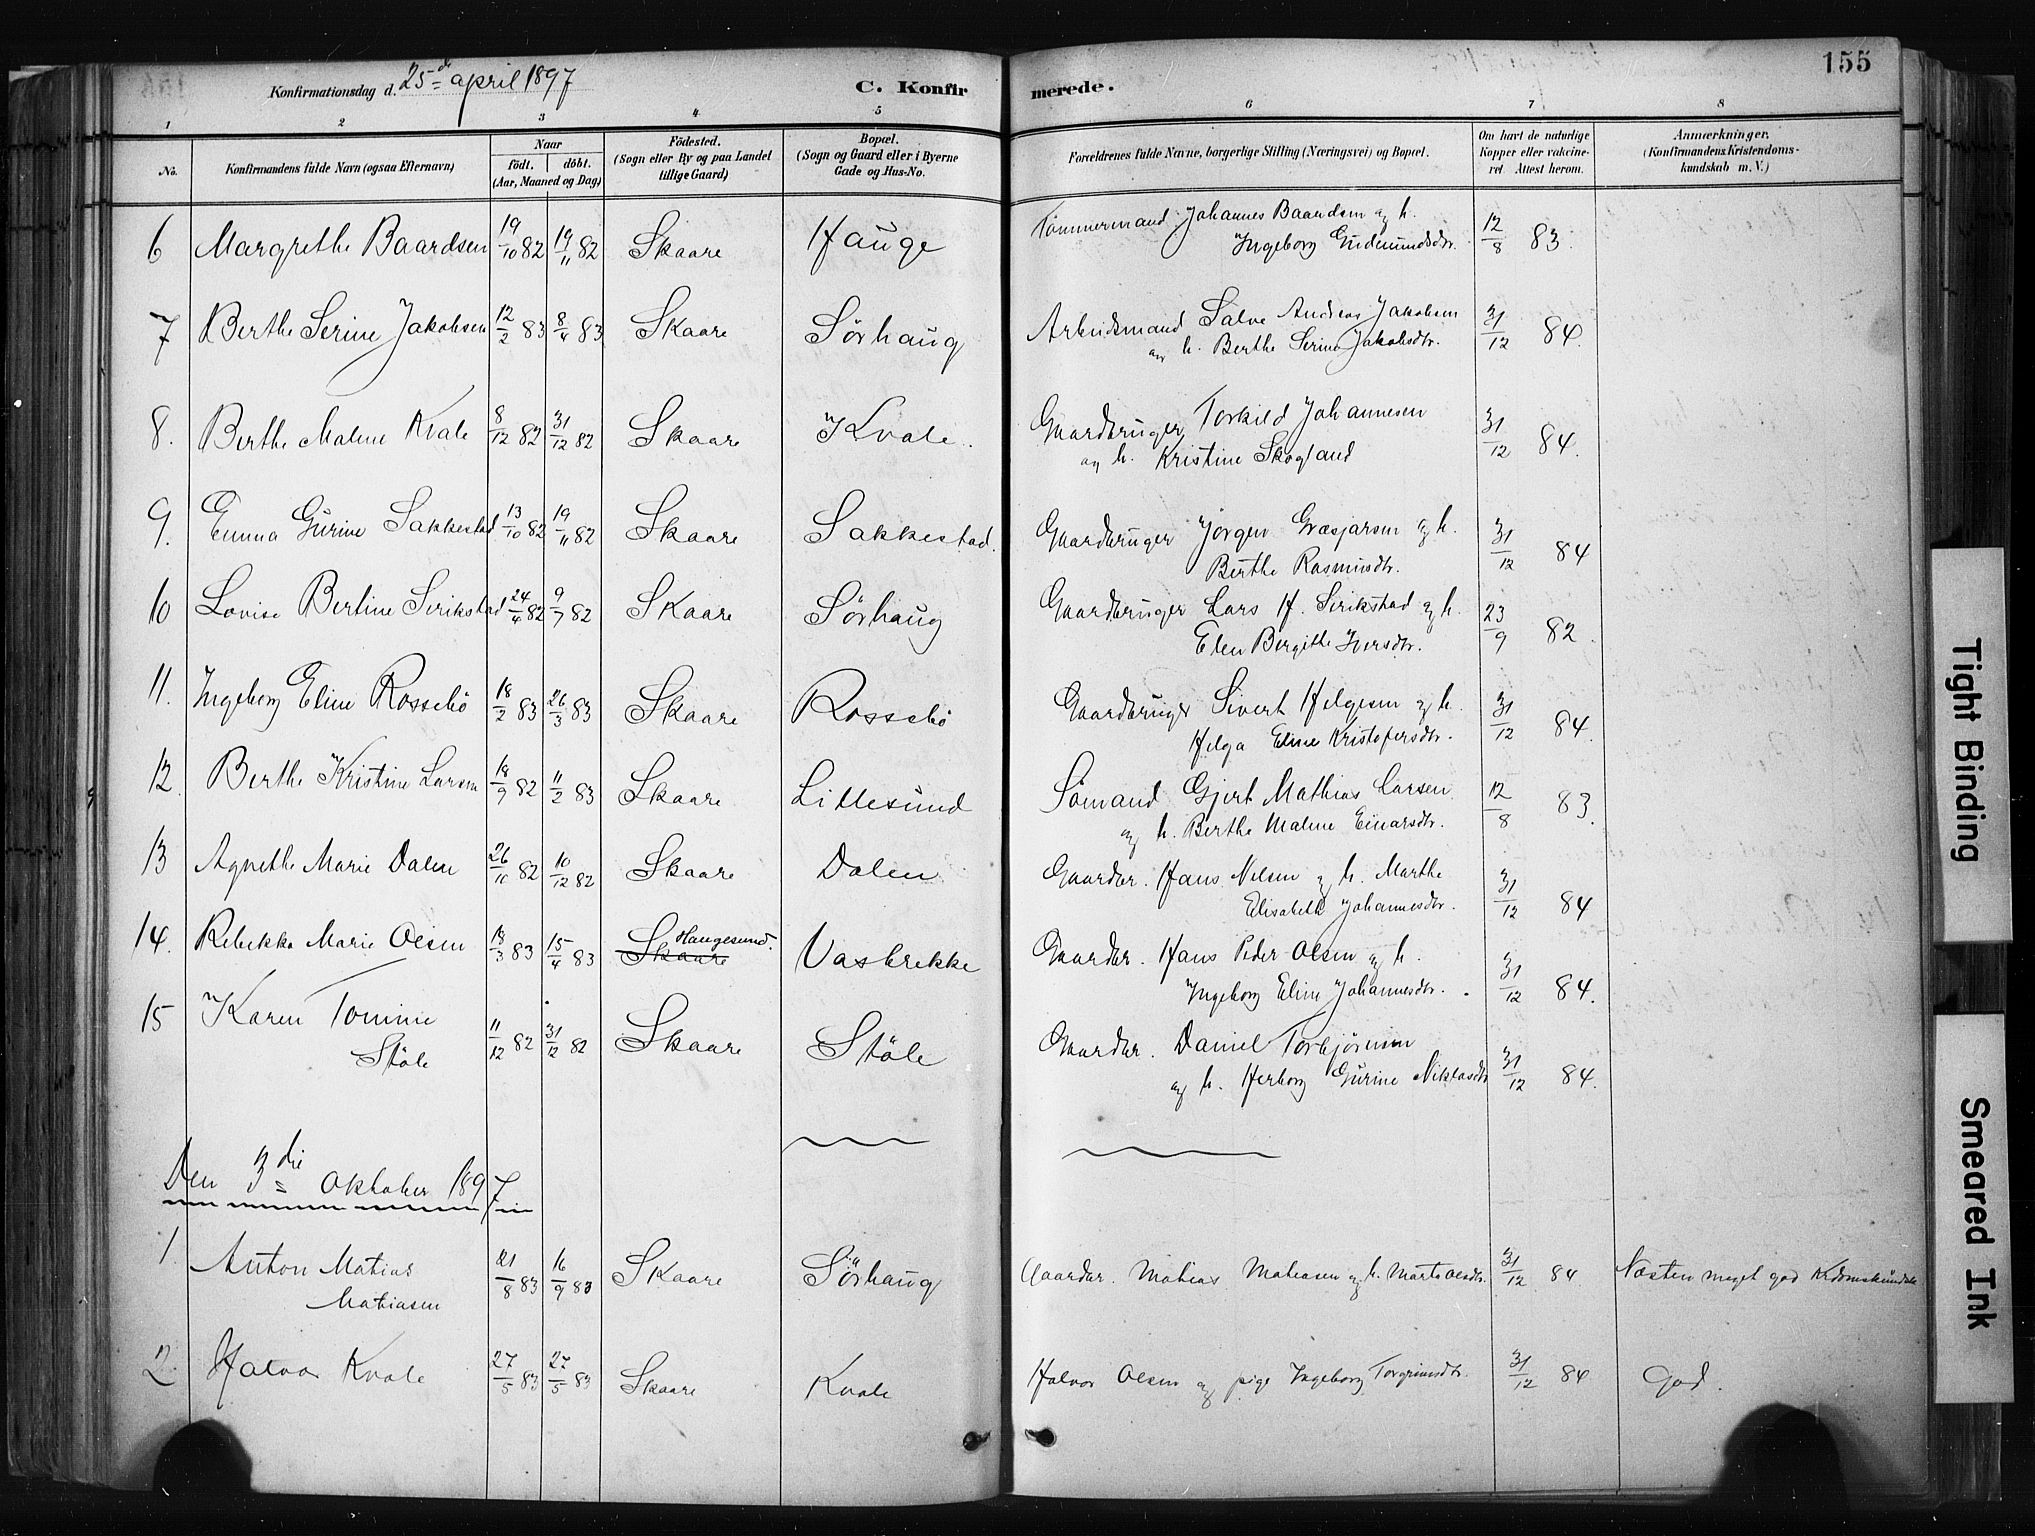 155
Konfirmationsdag d. 25de april 1897
C. Konfirmerede.
1 2 3 4 5 6 7 8
No.
Konfirmandens fulde Navn (ogsaa Efternavn)
Naar
födt. döbt.
(Aar, Maaned og Dag)
Födested.
(Sogn eller By og paa Landet
tillige Gaard)
Bopæl.
(Sogn og Gaard eller i Byerne
Gade og Hus-No.
Forældrenes fulde Navne, borgerlige Stilling (Næringsvei) og Bopæl.
Om havt de naturlige
Kopper eller vakcine-
ret Attest herom.
Anmærkninger,
(Konfirmandens Kristendoms-
kundskab m. V.)
6 Margrethe Baardsen 19/10 82 19/11 82 Skaare Hauge Tømmermand Johannes Baardsen og h. 12/8 83.
Ingeborg Gudmundsdtr.
7 Berthe Serine Jakobsen 12/2 83 8/4 83 Skaare Sörhaug Arbeidsmand Salve Andreas Jakobsen 31/12 84.
og h. Berthe Serine Jakobsdtr.
8. Berthe Malene Kvale 8/12 82 31/12 82 Skaare Kvale. Gaardbruger Torkild Johannesen 31/12 84.
og h. Kristine Skogland
9. Emma Gurine Sakkestad 13/10 82 19/11 82 Skaare Sakkestad. Gaardbruger Jörgen Græsjarsen og h. 31/12 84
Berthe Rasmusdtr.
10 Lovise Bertine Sirikstad 24/4 82 9/7 82 Skaare Sörhaug Gaardbruger Lars H. Sirikstad og h. 23/9 82.
Elen Bergitte Iversdtr.
11. Ingeborg Eline Rossebö 18/2 83 26/3 83 Skaare Rossebö Gaardbruger Sivert Helgesen og h. 31/12 84.
Helga Eline Kristofersdtr.
12. Berthe Kristine Larsen 18/9 82 11/2 83 Skaare Lillesund Sömand Gjert Mathias Larsen 12/8 83.
og h. Berthe Malene Einarsdtr.
13 Agnethe Marie Dalen 26/10 82 10/12 82 Skaare Dalen Gaardbr. Hans Nilsen og h. Marthe 31/12 84
Elisabeth Johannesdtr.
14. Rebekka Marie Olsen 13/3 83 15/4 83 Skaare Haugesund. Vasbrekke Gaardbr. Hans Peder Olsen og h. 31/12 84.
Ingeborg Eline Johannesdtr.
15 Karen Tomine 11/12 82 31/12 82 Skaare Stöle Gaardbr. Daniel Torbjörnsen 31/12 84.
Stöle og h. Herborg Gurine Niklasdtr
Den 3die Oktober 1897
1. Anton Matias 21/8 83 16/9 83 Skaare Sörhaug Gaardbr. Matias Matiasen og h. Marta Olsdtr. 31/12 84 Næsten meget god Krdomskundsk
Matiasen
2. Halvor Kvale 27/5 83 27/5 83 Skaare Kvale Halvor Olsen og pige Ingeborg Torgrimsdtr. 31/12 84 God.
Tight Binding
Smeared Ink